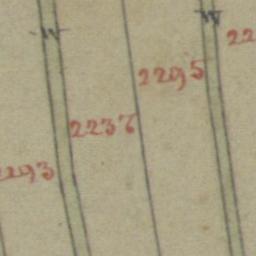 W
W
22
2295
2237
2293